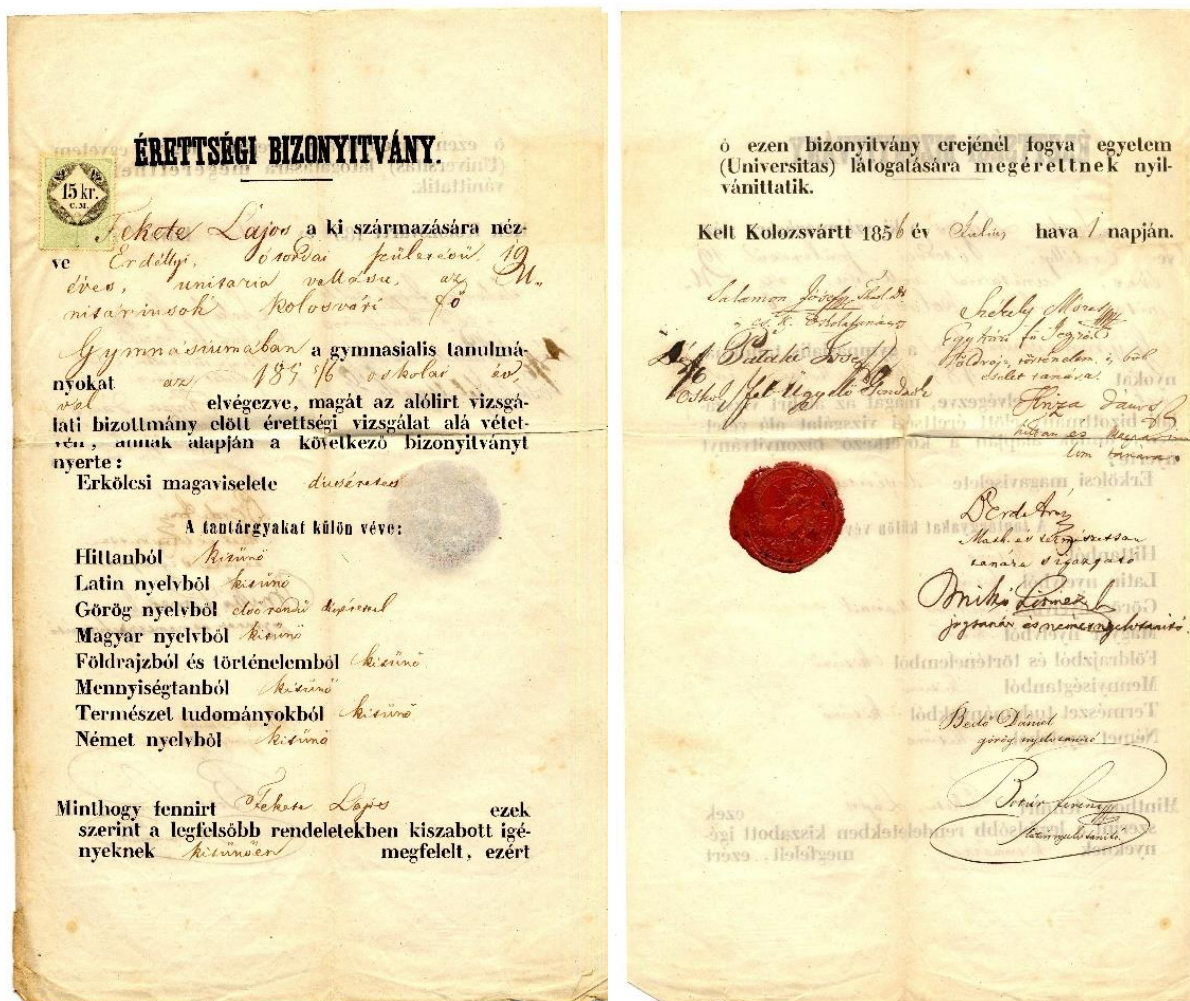 ÉRETTSÉGI BIZONYITVÁNY.
15 kr.
C.M.
Fekete Lajos a ki származására néz-
ve Erdélyi, ótordai születésű, 19
éves, unitaria vallásu, az U„
nitáriusok kolosvári fő
Gymnásiumában a gymnasialis tanulmá-
nyokat az 185 5/6 oskolai év,
vel elvégezve, magát az alólirt vizsgá-
lati bizottmány elött érettségi vizsgálat alá vétet-
vén, annak alapján a következő bizonyitványt
nyerte:
Erkölcsi magaviselete dicséretes
A tantárgyakat külön véve:
Hittanból kitünő
Latin nyelvből kitünő
Görög nyelvből elsőrendü
Magyar nyelvből kitünő
Földrajzból és történelemből kitünő
Mennyiségtanból kitünő
Természet tudományokból kitünő
Német nyelvből kitünő
Minthogy fennirt Fekete Lajos ezek
szerint a legfelsőbb rendeletekben kiszabott igé-
nyeknek kitünően megfelelt, ezért
ő ezen bizonyitvány erejénél fogva egyetem
(Universitas) látogatására megérettnek nyil-
vánittatik.
Kelt Kolozsvártt 1856 év Julius hava 1 napján.
Salamon József Theol. Dr
cs. k. Oskolatanácsos
Pataki József
Oskol. fel Ügyelő Gondnok
Székely Móses
Egyházi fő Jegyző
földrajz, történelem, s böl
cselet tanára.
Kriza János
hittan és magyar
tanára
Berde Áron
Math. es természettan
tanára s igazgató
Mikó Lőrincz
jogtanár és németnyelvtanító.
Bedő Dániel
görög nyelvtanító
Ferencz
latin nyelvtanító.